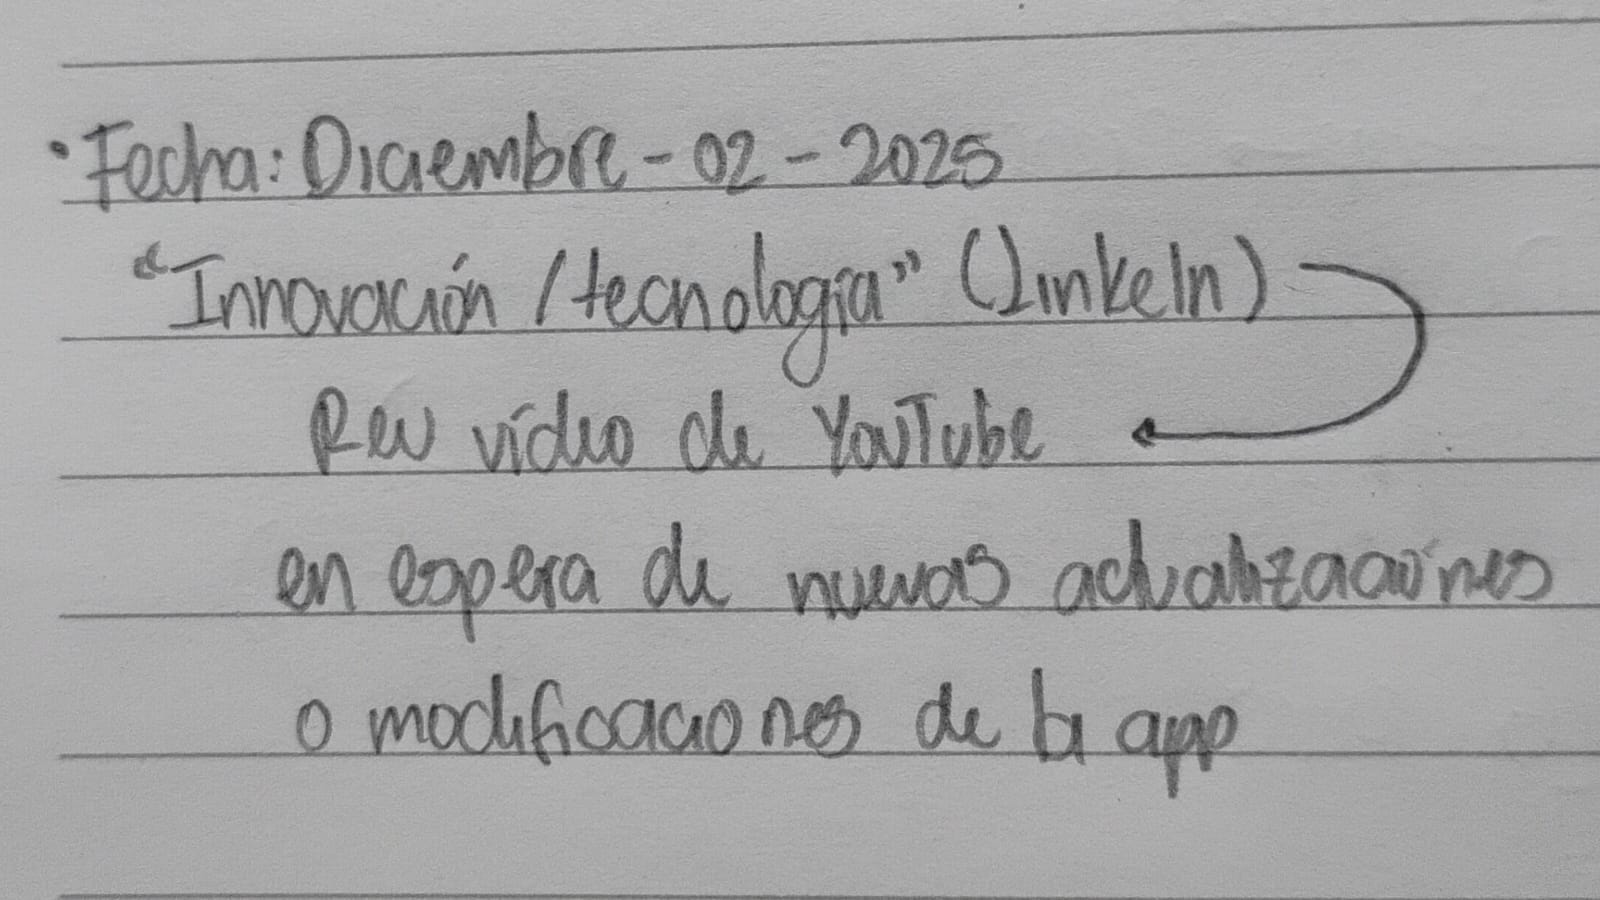 • Fecha: Diciembre - 02 - 2025
"Innovación / tecnología" (linkeIn)
Rev vídeo de YouTube
en espera de nuevas actualizaciones
o modificaciones de la app